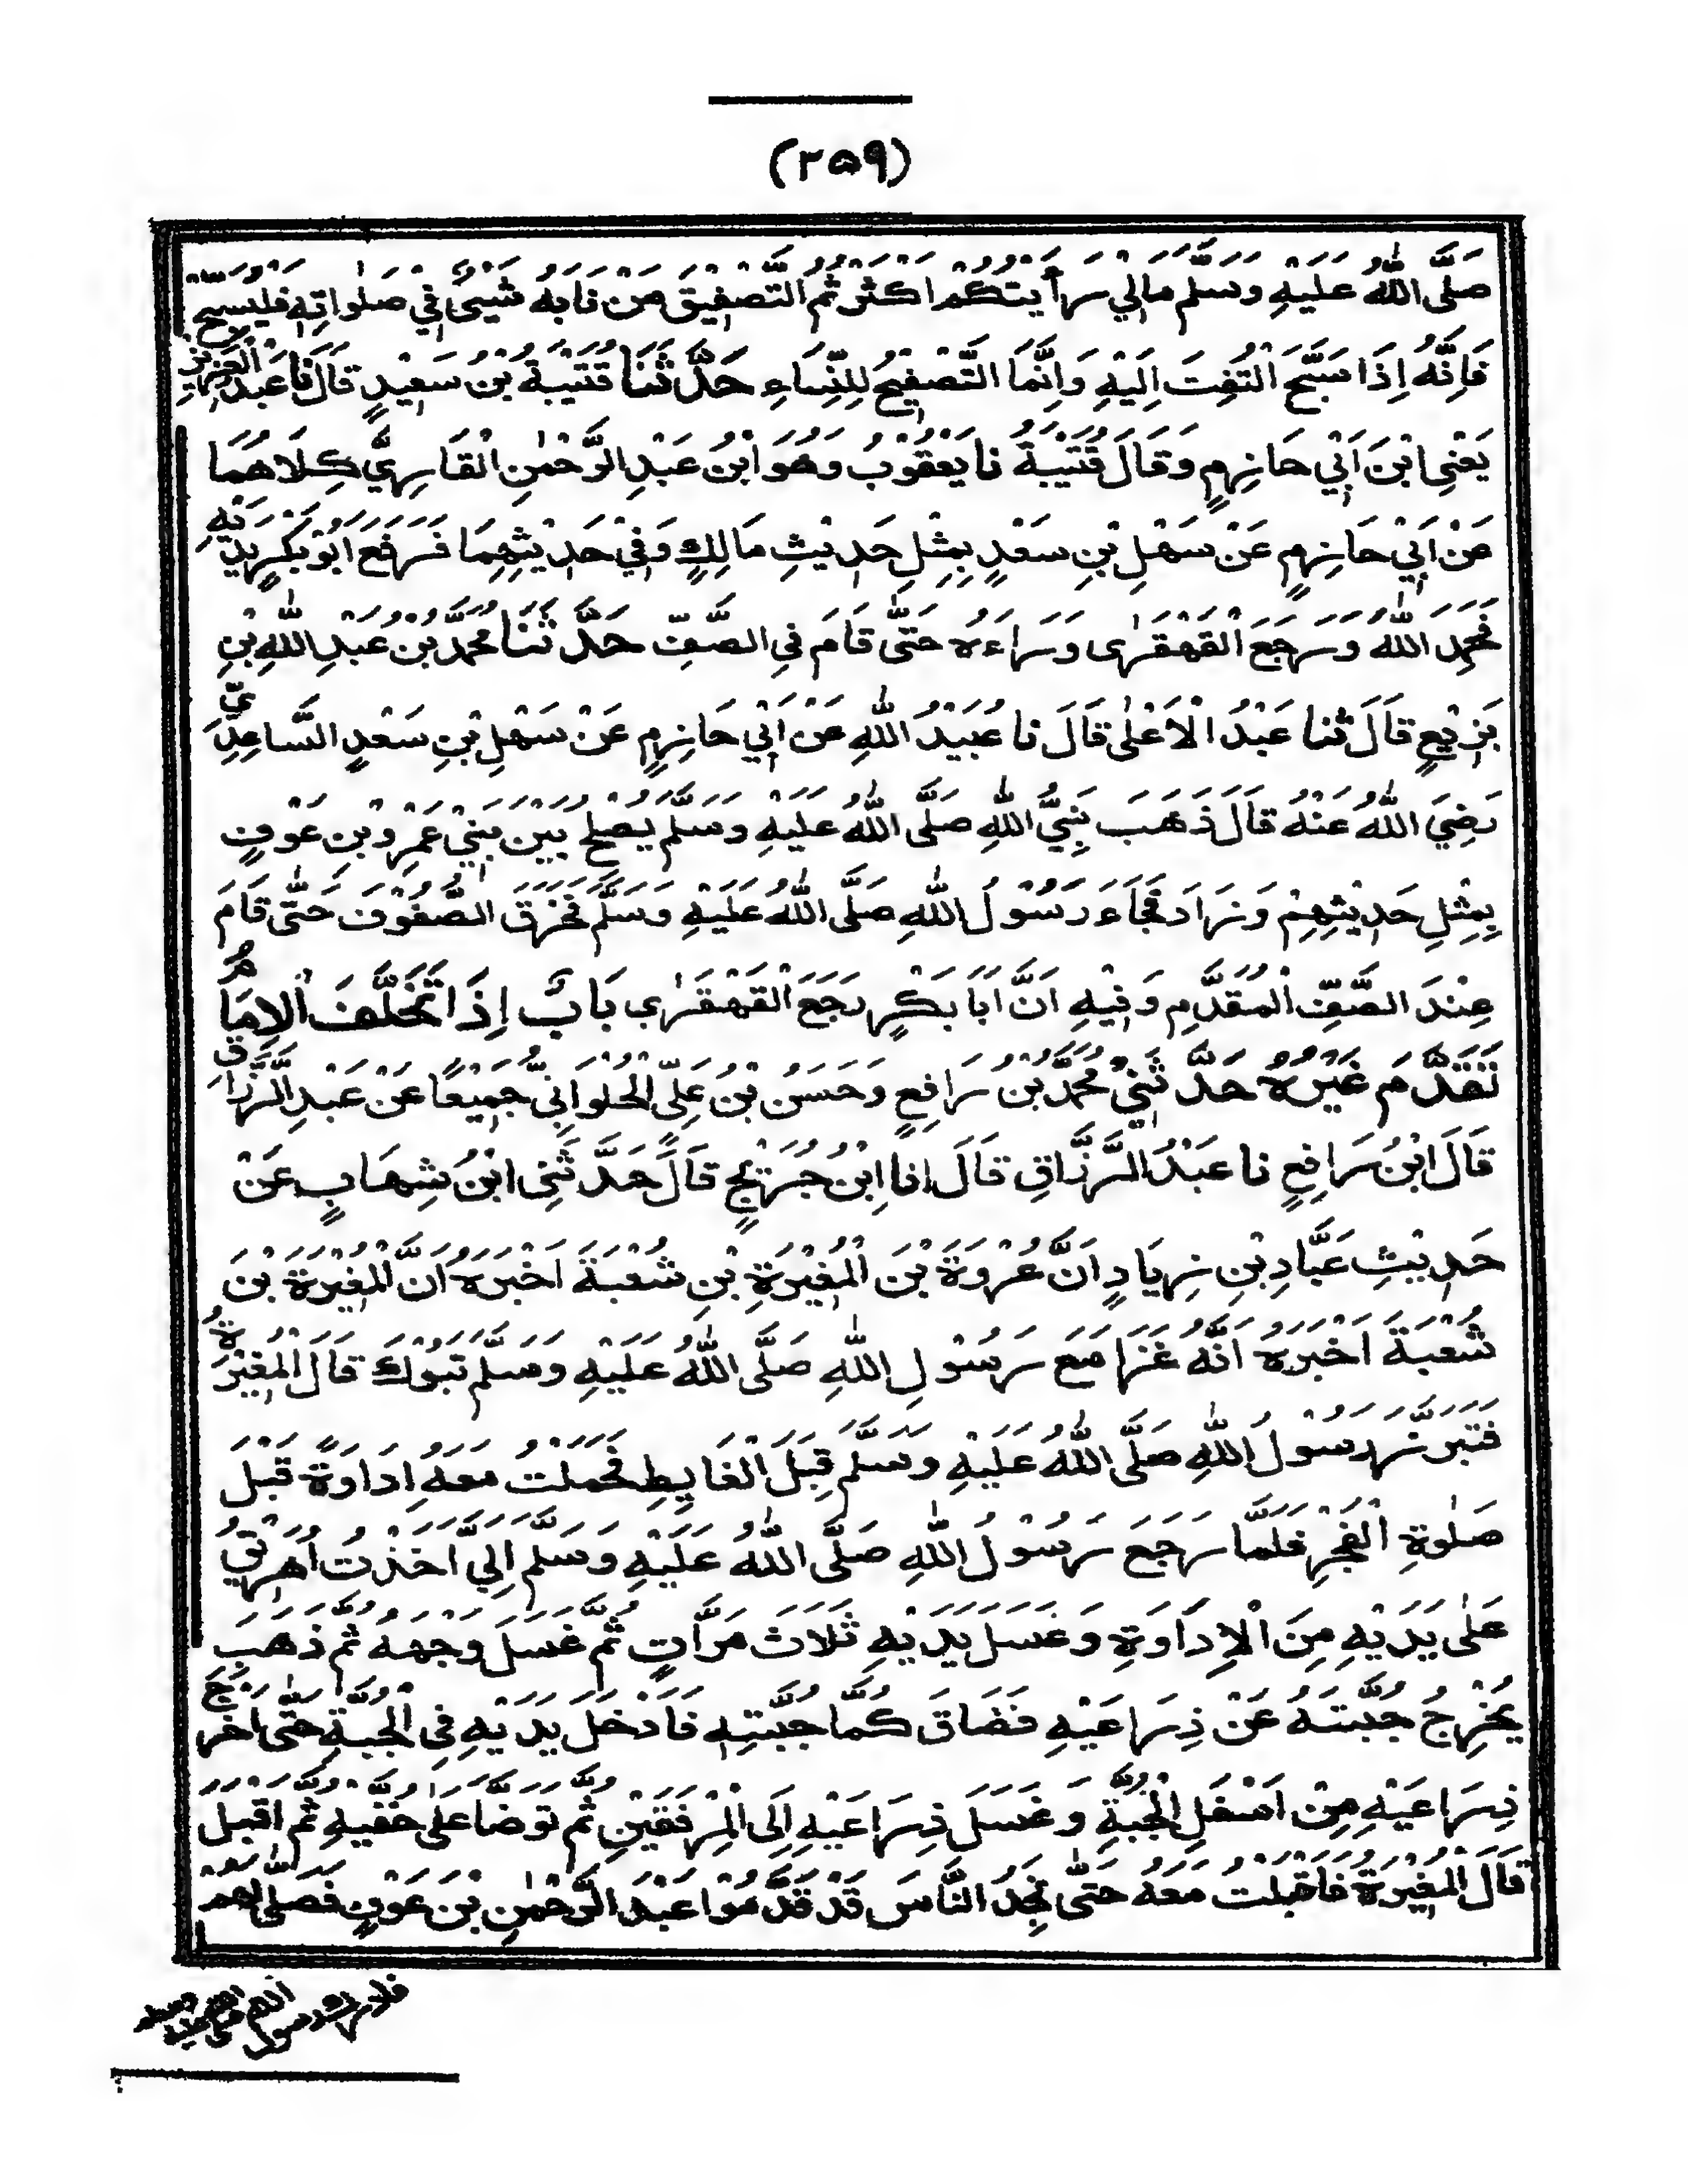 (٢٥٩)
صَلَّى اللهُ عَلَيْهِ وَسَلَّمَ مَالِي رَأَيْتُكُمْ اَكْثَرْتُمُ التَّصْفِيْقَ مَنْ نَابَهٗ شَيْئٌ فِيْ صَلٰوَاتِهٖ فَلْيُسَبِّحْ
فَاِنَّهٗ اِذَا سَبَّحَ الْتُفِتَ اِلَيْهِ وَاِنَّمَا التَّصْفِيْحُ لِلنِّسَاءِ حَدَّثَنَا قُتَيْبَةُ بْنُ سَعِيْدٍ قَالَ نَا عَبْدُ الْعَزِيْزِ
يَعْنِى ابْنَ اَبِيْ حَازِمٍ وَقَالَ قُتَيْبَةُ نَا يَعْقُوْبُ وَهُوَ ابْنُ عَبْدِ الرَّحْمٰنِ الْقَارِيُّ كِلَاهُمَا
عَنْ اَبِيْ حَازِمٍ عَنْ سَهْلِ بْنِ سَعْدٍ بِمِثْلِ حَدِيْثِ مَالِكٍ وَفِيْ حَدِيْثِهِمَا فَرَفَعَ اَبُوْ بَكْرٍ يَدَيْهِ
فَحَمِدَ اللهَ وَرَجَعَ الْقَهْقَرٰى وَرَاءَهٗ حَتّٰى قَامَ فِى الصَّفِّ حَدَّثَنَا مُحَمَّدُ بْنُ عَبْدِ اللهِ بْنِ
بَزِيْعٍ قَالَ ثنا عَبْدُ الْاَعْلٰى قَالَ نَا عُبَيْدُ اللهِ عَنْ اَبِيْ حَازِمٍ عَنْ سَهْلِ بْنِ سَعْدٍ السَّاعِدِيِّ
رَضِيَ اللهُ عَنْهُ قَالَ ذَهَبَ نَبِيُّ اللهِ صَلَّى اللهُ عَلَيْهِ وَسَلَّمَ يُصْلِحُ بَيْنَ بَنِيْ عَمْرِو بْنِ عَوْفٍ
بِمِثْلِ حَدِيْثِهِمْ وَزَادَ فَجَاءَ رَسُوْلُ اللهِ صَلَّى اللهُ عَلَيْهِ وَسَلَّمَ فَخَرَقَ الصُّفُوْفَ حَتّٰى قَامَ
عِنْدَ الصَّفِّ الْمُقَدَّمِ وَفِيْهِ اَنَّ اَبَا بَكْرٍ رَجَعَ الْقَهْقَرٰى بَابٌ اِذَا تَخَلَّفَ الْاِمَامُ
تَقَدَّمَ غَيْرُهٗ حَدَّثَنِيْ مُحَمَّدُ بْنُ رَافِعٍ وَحَسَنُ بْنُ عَلِيِّ الْحُلْوَانِيُّ جَمِيْعًا عَنْ عَبْدِ الرَّزَّاقِ
قَالَ ابْنُ رَافِعٍ نا عَبْدُ الرَّزَّاقِ قَالَ انا ابْنُ جُرَيْجٍ قَالَ حَدَّثَنِى ابْنُ شِهَابٍ عَنْ
حَدِيْثِ عَبَّادِ بْنِ زِيَادٍ اَنَّ عُرْوَةَ بْنَ الْمُغِيْرَةِ بْنِ شُعْبَةَ اَخْبَرَهٗ اَنَّ الْمُغِيْرَةَ بْنَ
شُعْبَةَ اَخْبَرَهٗ اَنَّهٗ غَزَا مَعَ رَسُوْلِ اللهِ صَلَّى اللهُ عَلَيْهِ وَسَلَّمَ تَبُوْكَ قَالَ الْمُغِيْرَةُ
فَتَبَرَّزَ رَسُوْلُ اللهِ صَلَّى اللهُ عَلَيْهِ وَسَلَّمَ قِبَلَ الْغَايِطِ فَحَمَلْتُ مَعَهٗ اِدَاوَةً قَبْلَ
صَلٰوةِ الْفَجْرِ فَلَمَّا رَجَعَ رَسُوْلُ اللهِ صَلَّى اللهُ عَلَيْهِ وَسَلَّمَ اِلَيَّ اَخَذْتُ اُهَرِيْقُ
عَلٰى يَدَيْهِ مِنَ الْاِدَاوَةِ وَغَسَلَ يَدَيْهِ ثَلَاثَ مَرَّاتٍ ثُمَّ غَسَلَ وَجْهَهٗ ثُمَّ ذَهَبَ
يُخْرِجُ جُبَّتَهٗ عَنْ ذِرَاعَيْهِ فَضَاقَ كُمَّا جُبَّتِهٖ فَاَدْخَلَ يَدَيْهِ فِى الْجُبَّةِ حَتّٰى اَخْرَجَ
ذِرَاعَيْهِ مِنْ اَسْفَلِ الْجُبَّةِ وَغَسَلَ ذِرَاعَيْهِ اِلَى الْمِرْفَقَيْنِ ثُمَّ تَوَضَّأَ عَلٰى خُفَّيْهِ ثُمَّ اَقْبَلَ
قَالَ الْمُغِيْرَةُ فَاَقْبَلْتُ مَعَهٗ حَتّٰى نَجِدُ النَّاسَ قَدْ قَدَّمُوْا عَبْدَ الرَّحْمٰنِ بْنَ عَوْفٍ فَصَلّٰى لَهُمْ
فادرك رسول الله صلى الله عليه وسلم